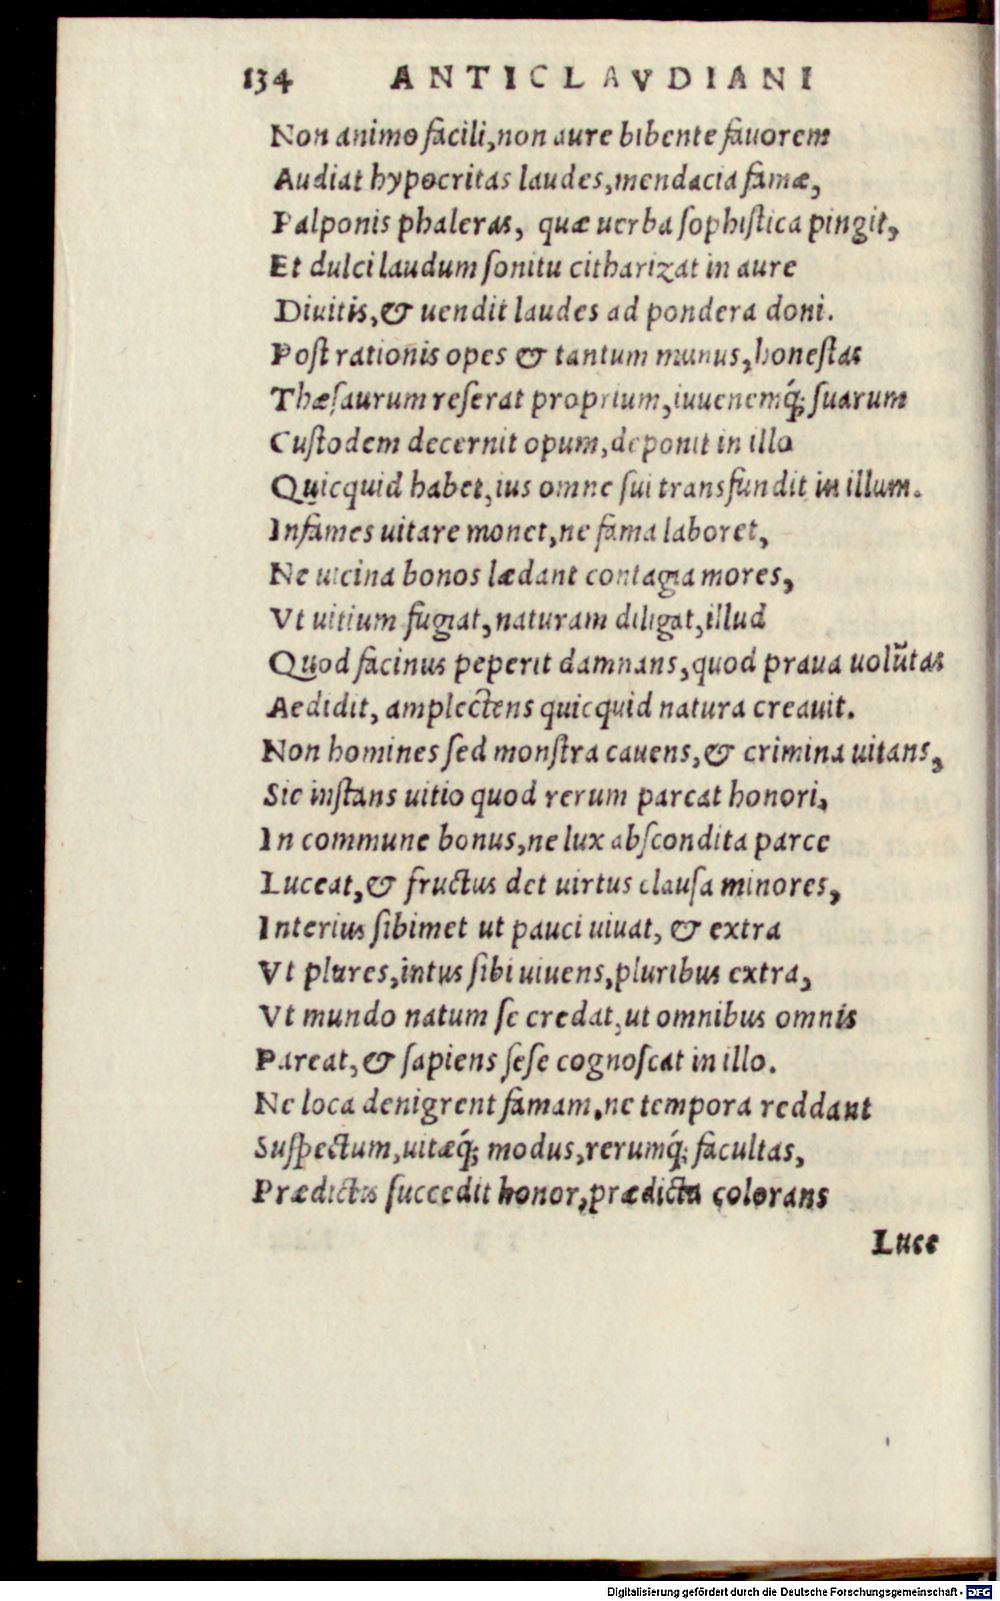 134 ANTICLAVDIANI
Non animo facili, non aure bibente fauorem
Audiat hypocritas laudes, mendacia famæ,
Palponis phaleras, quæ uerba sophistica pingit,
Et dulci laudum sonitu citharizat in aure
Diuitis, & uendit laudes ad pondera doni.
Post rationis opes & tantum munus, honestas
Thæsaurum reserat proprium, iuuenemq́; suarum
Custodem decernit opum, deponit in illo
Quicquid habet, ius omne sui transfundit in illum.
Infames uitare monet, ne fama laboret,
Ne uicina bonos lædant contagia mores,
Vt uitium fugiat, naturam diligat, illud
Quod facinus peperit damnans, quod praua uolũtas
Aedidit, amplectens quicquid natura creauit.
Non homines sed monstra cauens, & crimina uitans,
Sic instans uitio quod rerum parcat honori,
In commune bonus, ne lux abscondita parce
Luceat, & fructus det uirtus clausa minores,
Interius sibimet ut pauci uiuat, & extra
Vt plures, intus sibi uiuens, pluribus extra,
Vt mundo natum se credat, ut omnibus omnis
Pareat, & sapiens sese cognoscat in illo.
Ne loca denigrent famam, ne tempora reddant
Suspectum, uitæq́; modus, rerumq́; facultas,
Prædictis succedit honor, prædicta colorans
Luce
Digitalisierung gefördert durch die Deutsche Forschungsgemeinschaft - DFG